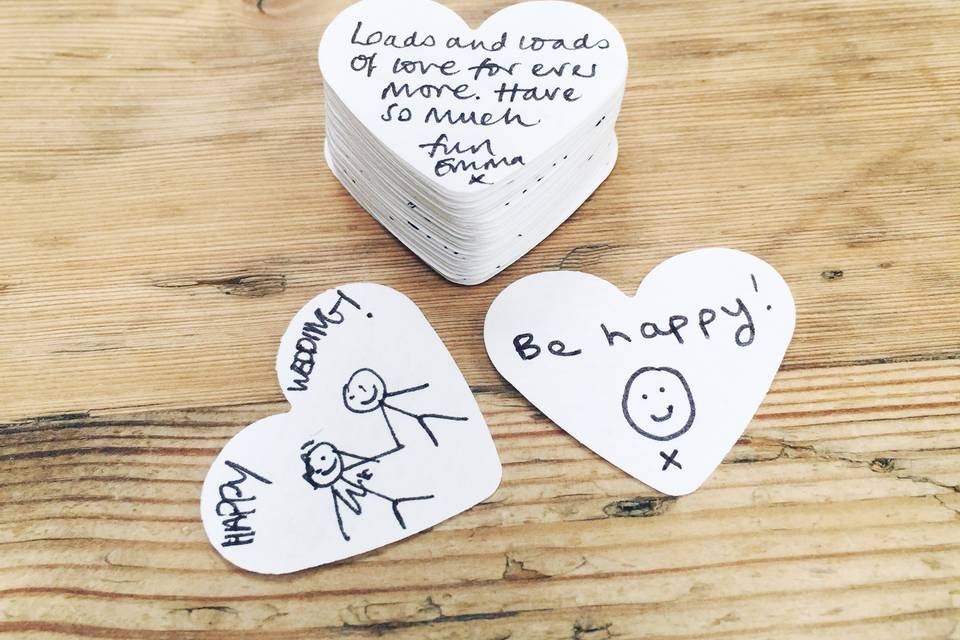 Loads and loads
of love for ever
more. Have
so much
fun
Emma
x
HAPPY WEDDING!
Be happy!
x